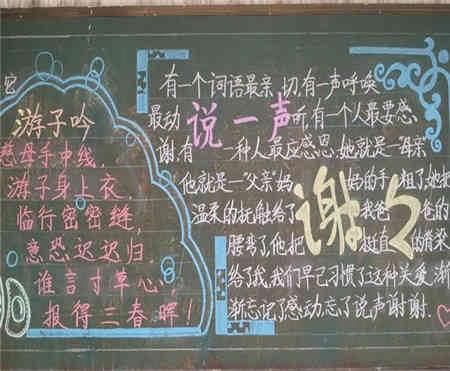 游子吟
慈母手中线,
游子身上衣,
临行密密缝,
意恐迟迟归,
谁言寸草心,
报得三春晖!
有一个词语最亲切有一声呼唤
最动 说一声 听有一个人最要感
谢,有一种人最应感恩,她就是“母亲”
他就是“父亲”妈 妈的手粗了,她把
温柔的抚触给了 谢々 我爸爸的
腰弯了,他把 挺直的脊梁
给了我,我们早已习惯了这种关爱,渐
渐忘记了感动忘了说声谢谢.